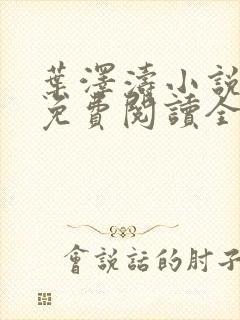 葉澤濤小說
免費閱讀全
會說話的肘子